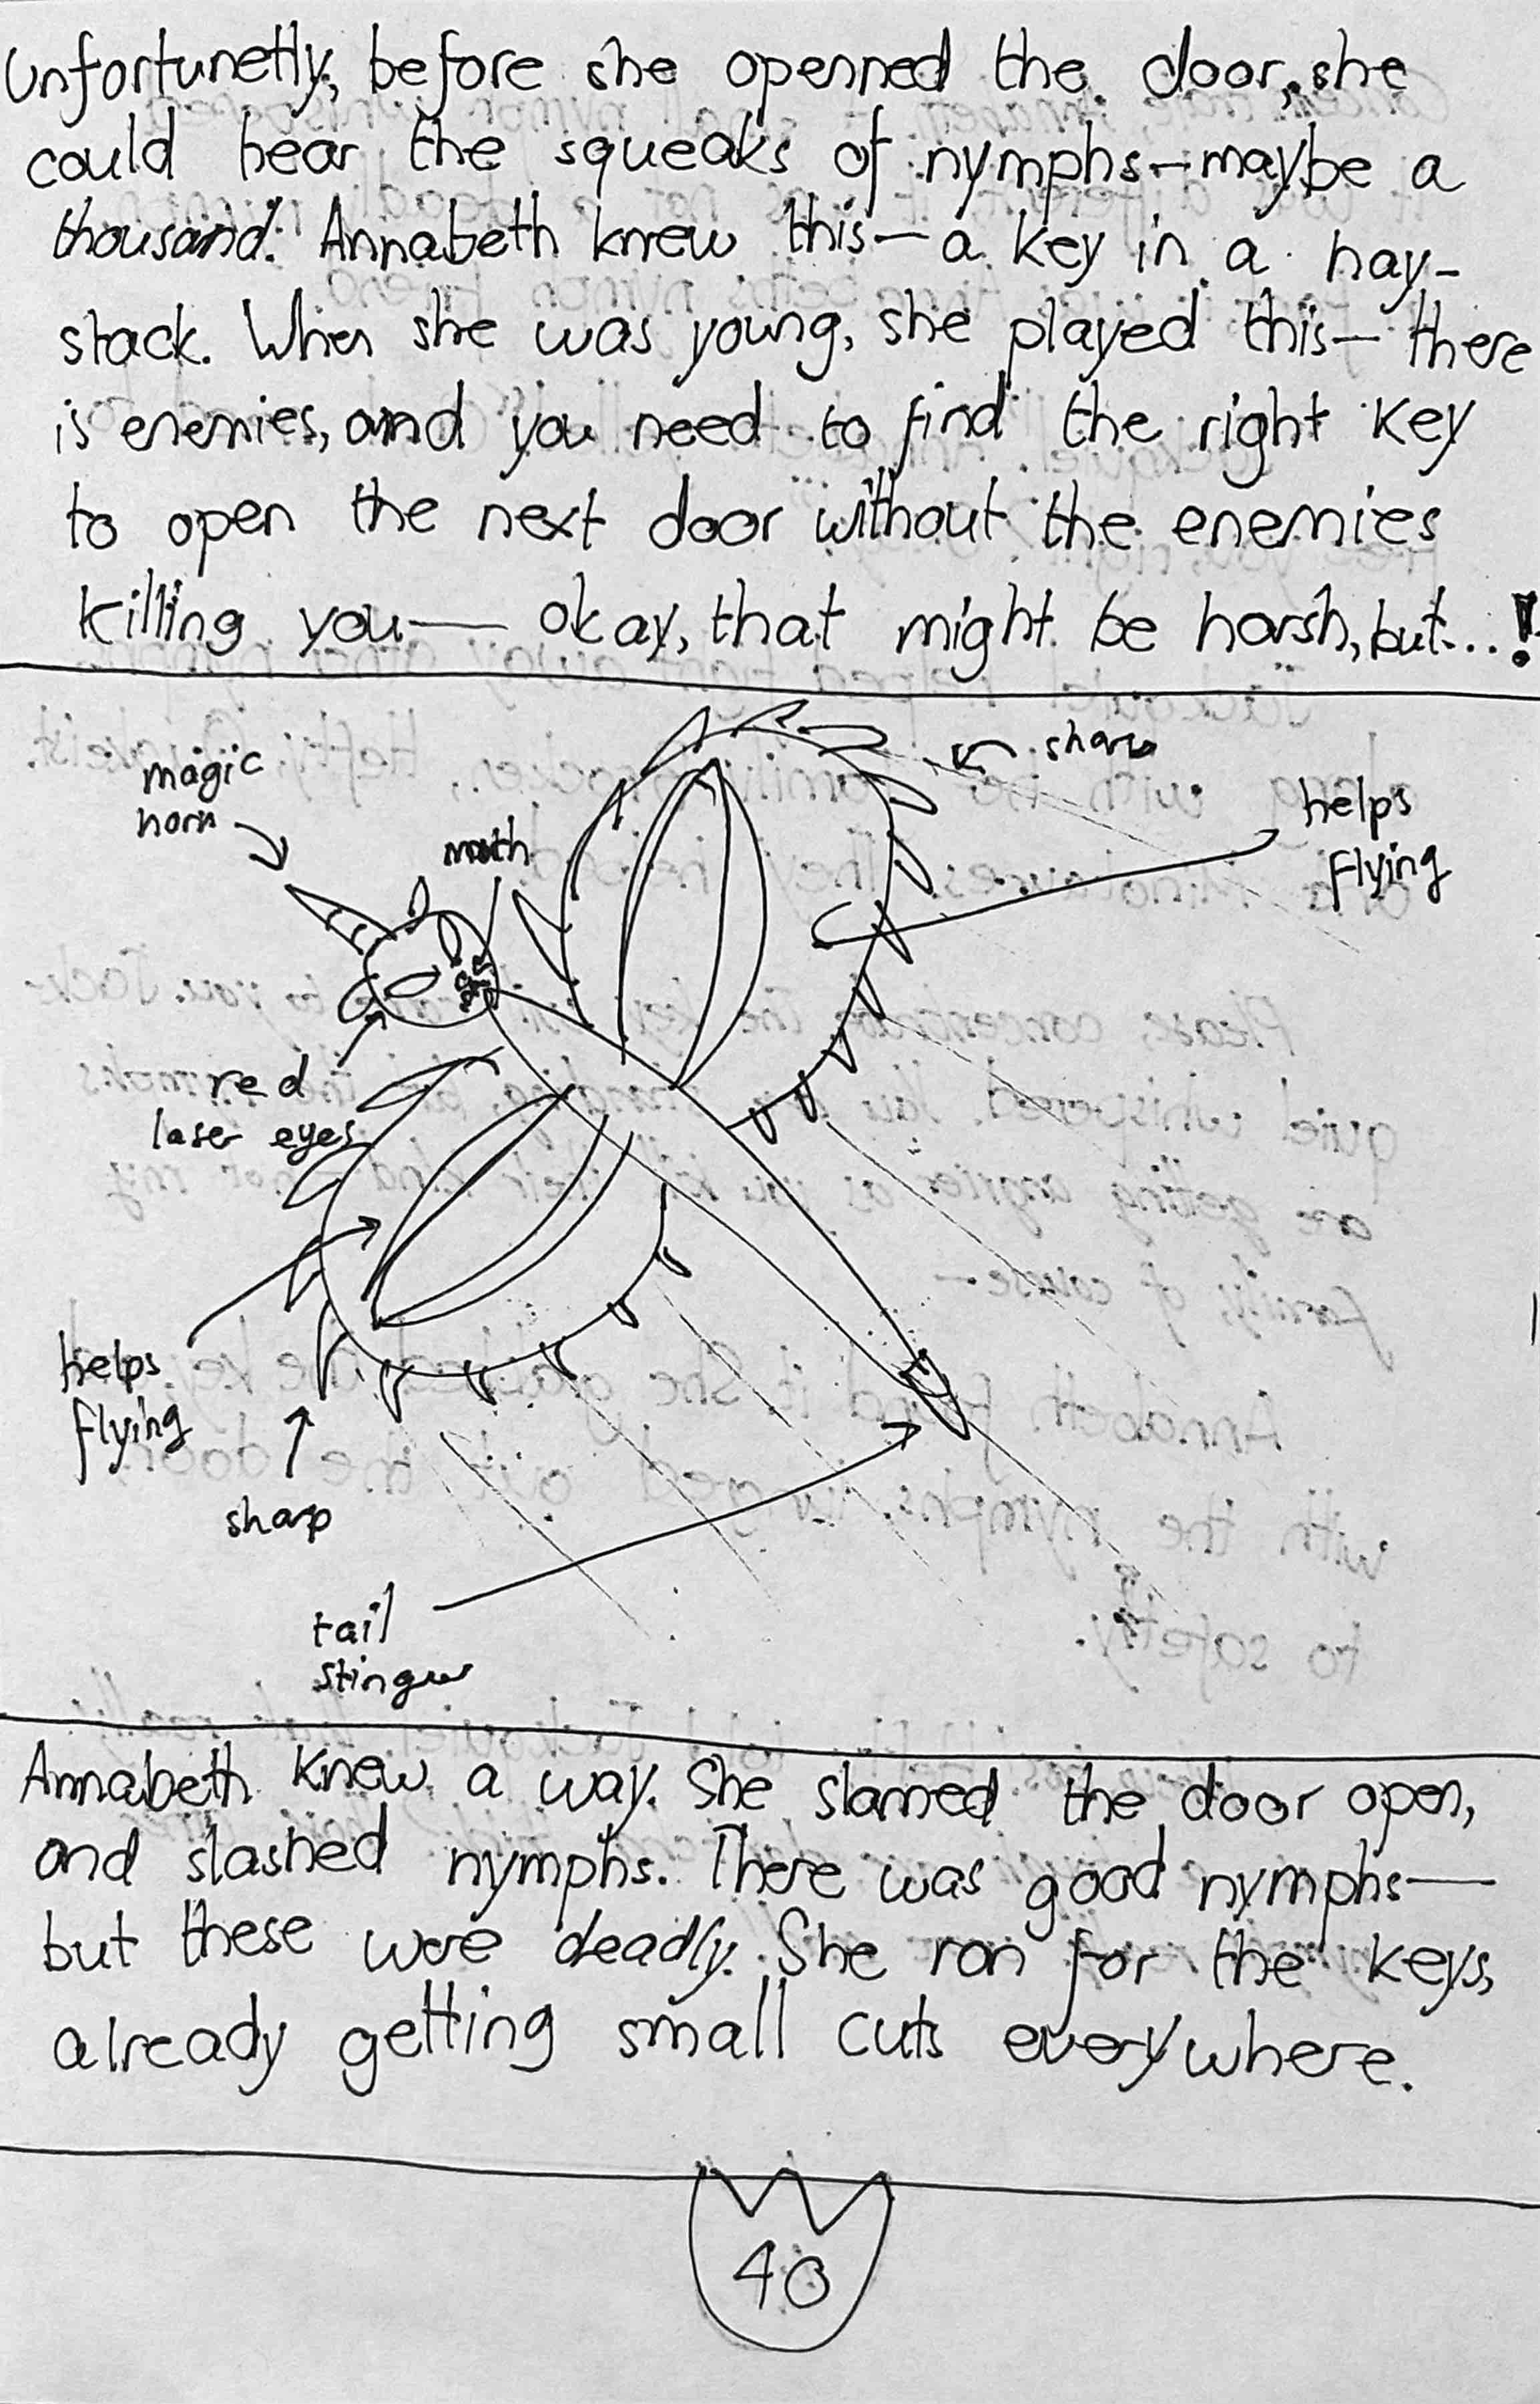 Unfortunetly, before she openned the door, she
could hear the squeaks of nymphs—maybe a
thousand. Annabeth knew this—a key in a hay-
stack. When she was young, she played this—there
is enemies, and you need to find the right key
to open the next door without the enemies
killing you— okay, that might be harsh, but...!
magic
horn
sharp
helps
flying
moth
red
laser eyes
helps
flying
sharp
tail
stinger
Annabeth knew a way. She slamed the door open,
and slashed nymphs. There was good nymphs—
but these were deadly. She ran for the keys,
already getting small cuts everywhere.
40